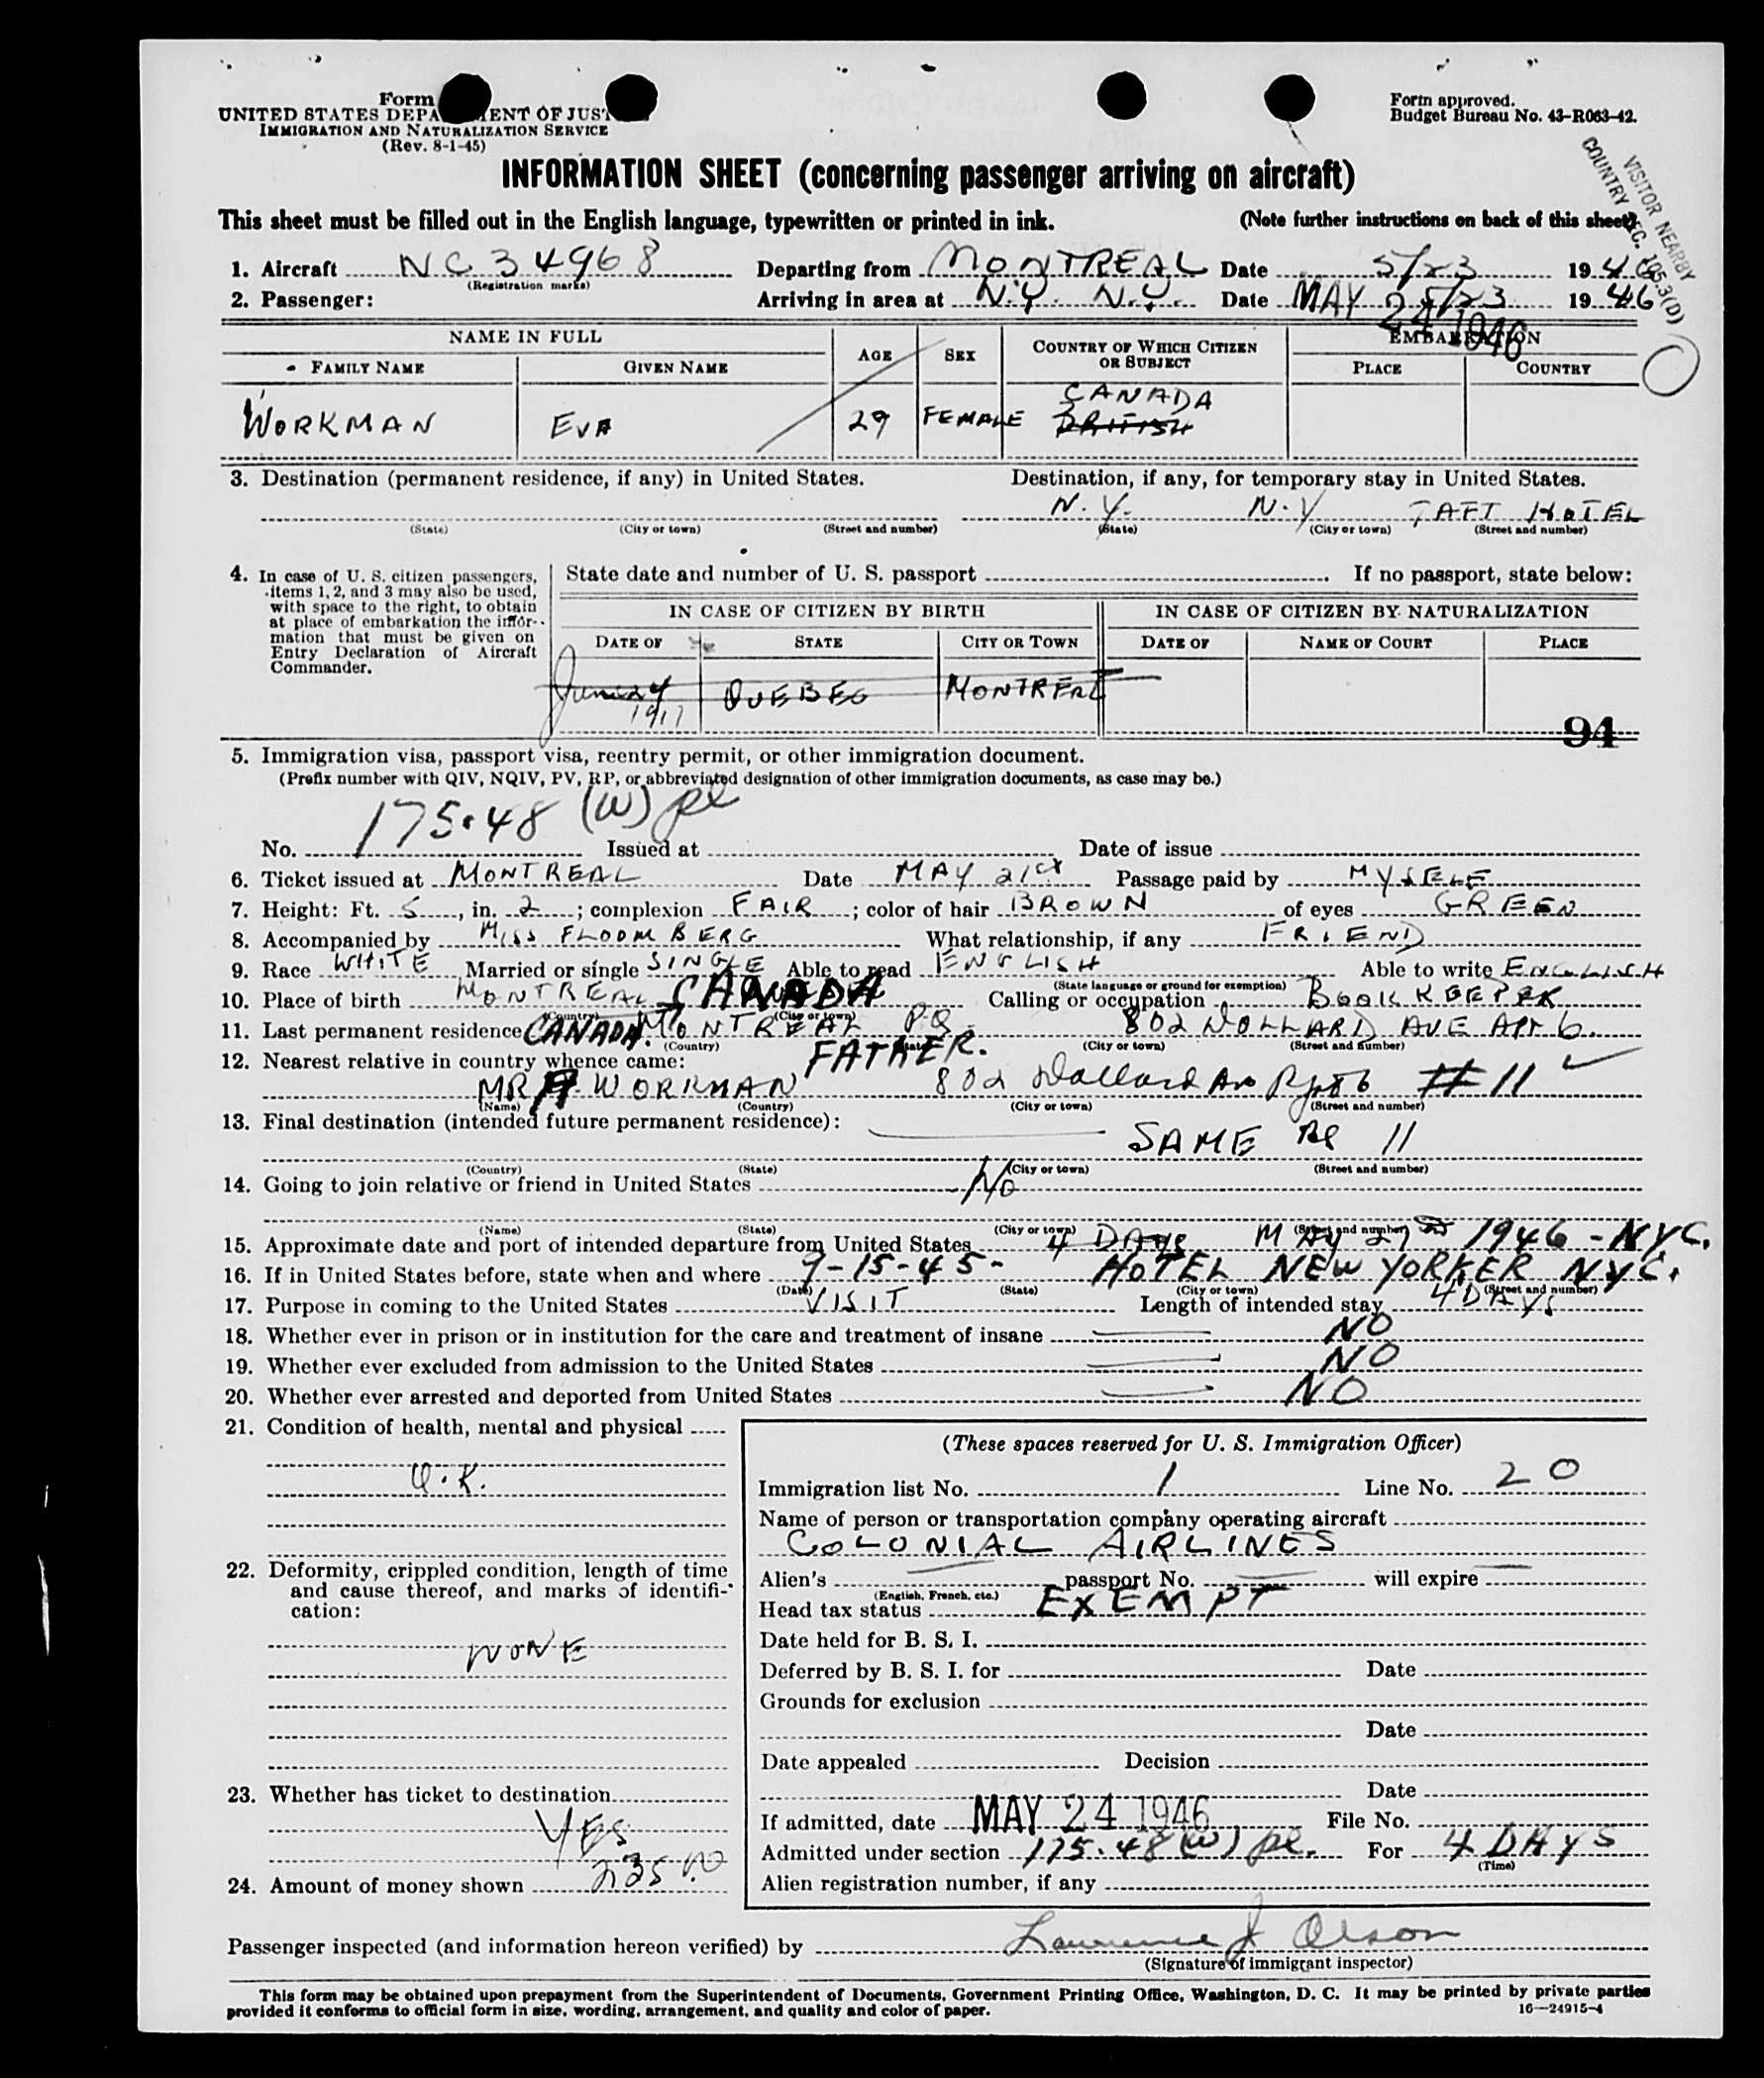 Form
UNITED STATES DEPA MENT OF JUST
IMMIGRATION AND NATURALIZATION SERVICE
(Rev. 8-1-45)
Form approved.
Budget Bureau No. 43-R063-42.
VISITOR NEARBY
COUNTRY SEC. 105.3(D)
INFORMATION SHEET (concerning passenger arriving on aircraft)
This sheet must be filled out in the English language, typewritten or printed in ink. (Note further instructions on back of this sheet).
1. Aircraft NC34968 Departing from MONTREAL Date 5/23 1946
(Registration marks)
2. Passenger: Arriving in area at N.Y. N.Y. Date 5/23 1946
MAY 24 1946
NAME IN FULL AGE SEX COUNTRY OF WHICH CITIZEN OR SUBJECT EMBARKATION
FAMILY NAME GIVEN NAME PLACE COUNTRY
WORKMAN EVA 29 FEMALE CANADA BRITISH
3. Destination (permanent residence, if any) in United States. Destination, if any, for temporary stay in United States.
N.Y. N.Y TAFT HOTEL
(State) (City or town) (Street and number) (State) (City or town) (Street and number)
4. In case of U. S. citizen passengers, items 1, 2, and 3 may also be used, with space to the right, to obtain at place of embarkation the information that must be given on Entry Declaration of Aircraft Commander.
State date and number of U. S. passport If no passport, state below:
IN CASE OF CITIZEN BY BIRTH IN CASE OF CITIZEN BY NATURALIZATION
DATE OF STATE CITY OR TOWN DATE OF NAME OF COURT PLACE
1917 QUEBEC MONTREAL
94
5. Immigration visa, passport visa, reentry permit, or other immigration document.
(Prefix number with QIV, NQIV, PV, RP, or abbreviated designation of other immigration documents, as case may be.)
No. 175.48 (W) pl Issued at Date of issue
6. Ticket issued at MONTREAL Date MAY 21st Passage paid by MYSELF
7. Height: Ft. 5, in. 2; complexion FAIR; color of hair BROWN of eyes GREEN
8. Accompanied by MISS FLOOMBERG What relationship, if any FRIEND
9. Race WHITE Married or single SINGLE Able to read ENGLISH Able to write ENGLISH
(State language or ground for exemption)
10. Place of birth MONTREAL CANADA Calling or occupation BOOKKEEPER
(Country) (City or town)
11. Last permanent residence CANADA. MONTREAL PQ. 802 DOLLARD AVE APT 6.
(Country) (State) (City or town) (Street and number)
12. Nearest relative in country whence came: FATHER.
MR WORKMAN 802 Dollard Ave Apt 6 #11
(Name) (Country) (City or town) (Street and number)
13. Final destination (intended future permanent residence):
SAME 11
(Country) (State) (City or town) (Street and number)
14. Going to join relative or friend in United States No
(Name) (State) (City or town) (Street and number)
15. Approximate date and port of intended departure from United States 4 DAYS MAY 27 1946 - NYC.
16. If in United States before, state when and where 9-15-45- HOTEL NEW YORKER NYC.
(Date) (State) (City or town) (Street and number)
17. Purpose in coming to the United States VISIT Length of intended stay 4 DAYS
18. Whether ever in prison or in institution for the care and treatment of insane NO
19. Whether ever excluded from admission to the United States NO
20. Whether ever arrested and deported from United States NO
21. Condition of health, mental and physical
O.K.
22. Deformity, crippled condition, length of time and cause thereof, and marks of identification:
NONE
23. Whether has ticket to destination
YES
24. Amount of money shown 235.00
(These spaces reserved for U. S. Immigration Officer)
Immigration list No. 1 Line No. 20
Name of person or transportation company operating aircraft
COLONIAL AIRLINES
Alien's passport No. will expire
(English, French, etc.)
Head tax status EXEMPT
Date held for B. S. I.
Deferred by B. S. I. for Date
Grounds for exclusion
Date
Date appealed Decision
Date
If admitted, date MAY 24 1946 File No.
Admitted under section 175.48 (W) pl. For 4 DAYS
(Time)
Alien registration number, if any
Passenger inspected (and information hereon verified) by Lawrence J Olson
(Signature of immigrant inspector)
This form may be obtained upon prepayment from the Superintendent of Documents, Government Printing Office, Washington, D. C. It may be printed by private parties
provided it conforms to official form in size, wording, arrangement, and quality and color of paper. 16—24915-4